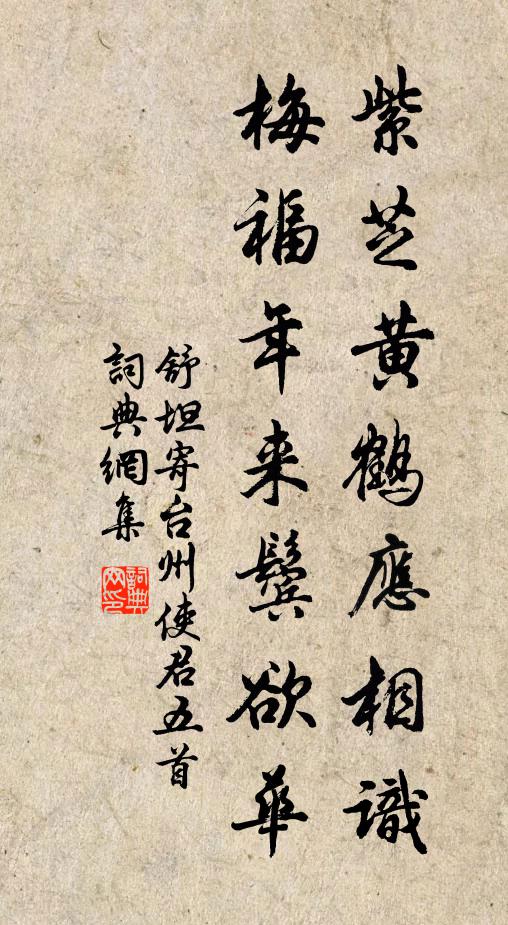 紫芝黄鶴應相識
梅福年来鬓欲華
舒坦寄台州使君五首
詞典網集
詞典網印